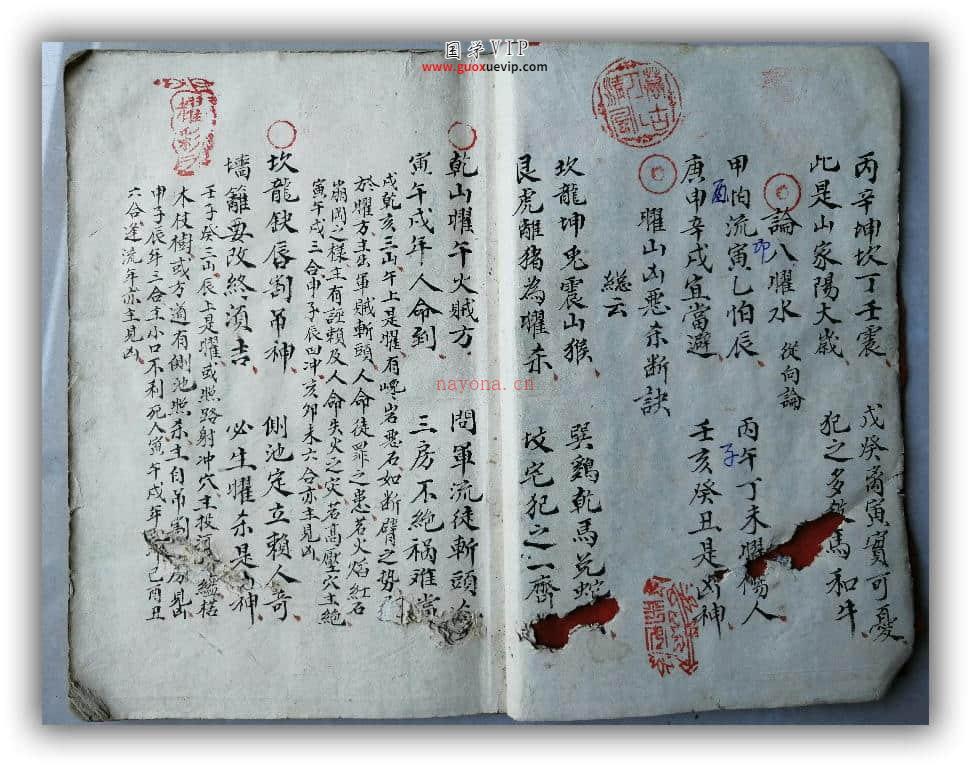 国学VIP
www.guoxuevip.com
丙辛坤坎丁壬震 戊癸离寅實可憂
此是山家陽大歲 犯之多 馬和牛
論八曜水 從向論
甲怕流寅乙怕辰 丙午丁未曜 人
卯
庚申辛戌宜當避 壬亥癸丑是凶神
酉
子
曜山凶惡杀断訣
總云
坎龍坤兎震山猴 巽鷄乾馬兑蛇
艮虎離猪為曜杀 坟宅犯之一齊
乾山曜午火賊方 問軍流徒斬頭
寅午戌年人命到 三房不絶祸难當
戌乾亥三山午上是曜有峥岩惡石如断臂之势
於曜方主出軍賊斬頭人命徒罪之患若火焰红石
崩岡之樣主有誣賴及人命失火之灾若高壓穴主絶
寅午戌三合申子辰四冲亥卯未六合亦主見凶
坎龍缺唇割吊神 側池定立賴人奇
墻籬要改終須吉 必生曜杀是 神
壬子癸三山辰上是曜或照路射冲穴主投河 縊枯
木枝樹或方道有側池照杀主自吊割 房見凶
申子辰年三合主小口不利死人寅午戌年 己酉丑
六合逢流年亦主見凶
曜彩
nayona.cn